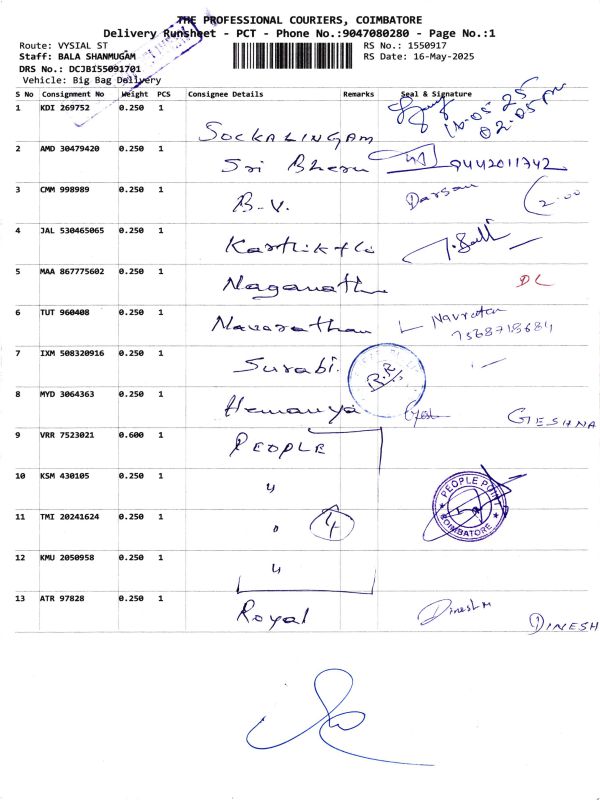 THE PROFESSIONAL COURIERS, COIMBATORE
Delivery Runsheet - PCT - Phone No.:9047080280 - Page No.:1
Route: VYSIAL ST
Staff: BALA SHANMUGAM
DRS No.: DCJB155091701
Vehicle: Big Bag Delivery
RS No.: 1550917
RS Date: 16-May-2025
S No Consignment No Weight PCS Consignee Details Remarks Seal & Signature
1 KDI 269752 0.250 1 SOCKALINGAM 16.05.25 02.05pm
2 AMD 30479420 0.250 1 Sri Bheru 9442011742
3 CMM 998989 0.250 1 B.V. Darsan 2.00
4 JAL 530465065 0.250 1
5 MAA 867775602 0.250 1 DL
6 TUT 960408 0.250 1 Navarathan Navratan
7 IXM 508320916 0.250 1 Surabi. R.R
8 MYD 3064363 0.250 1 Hemanya GIESHNA
9 VRR 7523021 0.600 1 PEOPLE
10 KSM 430105 0.250 1 "
PEOPLE POINT COIMBATORE
11 TMI 20241624 0.250 1 " 4
12 KMU 2050958 0.250 1 "
13 ATR 97828 0.250 1 Royal Dinesh M DINESH